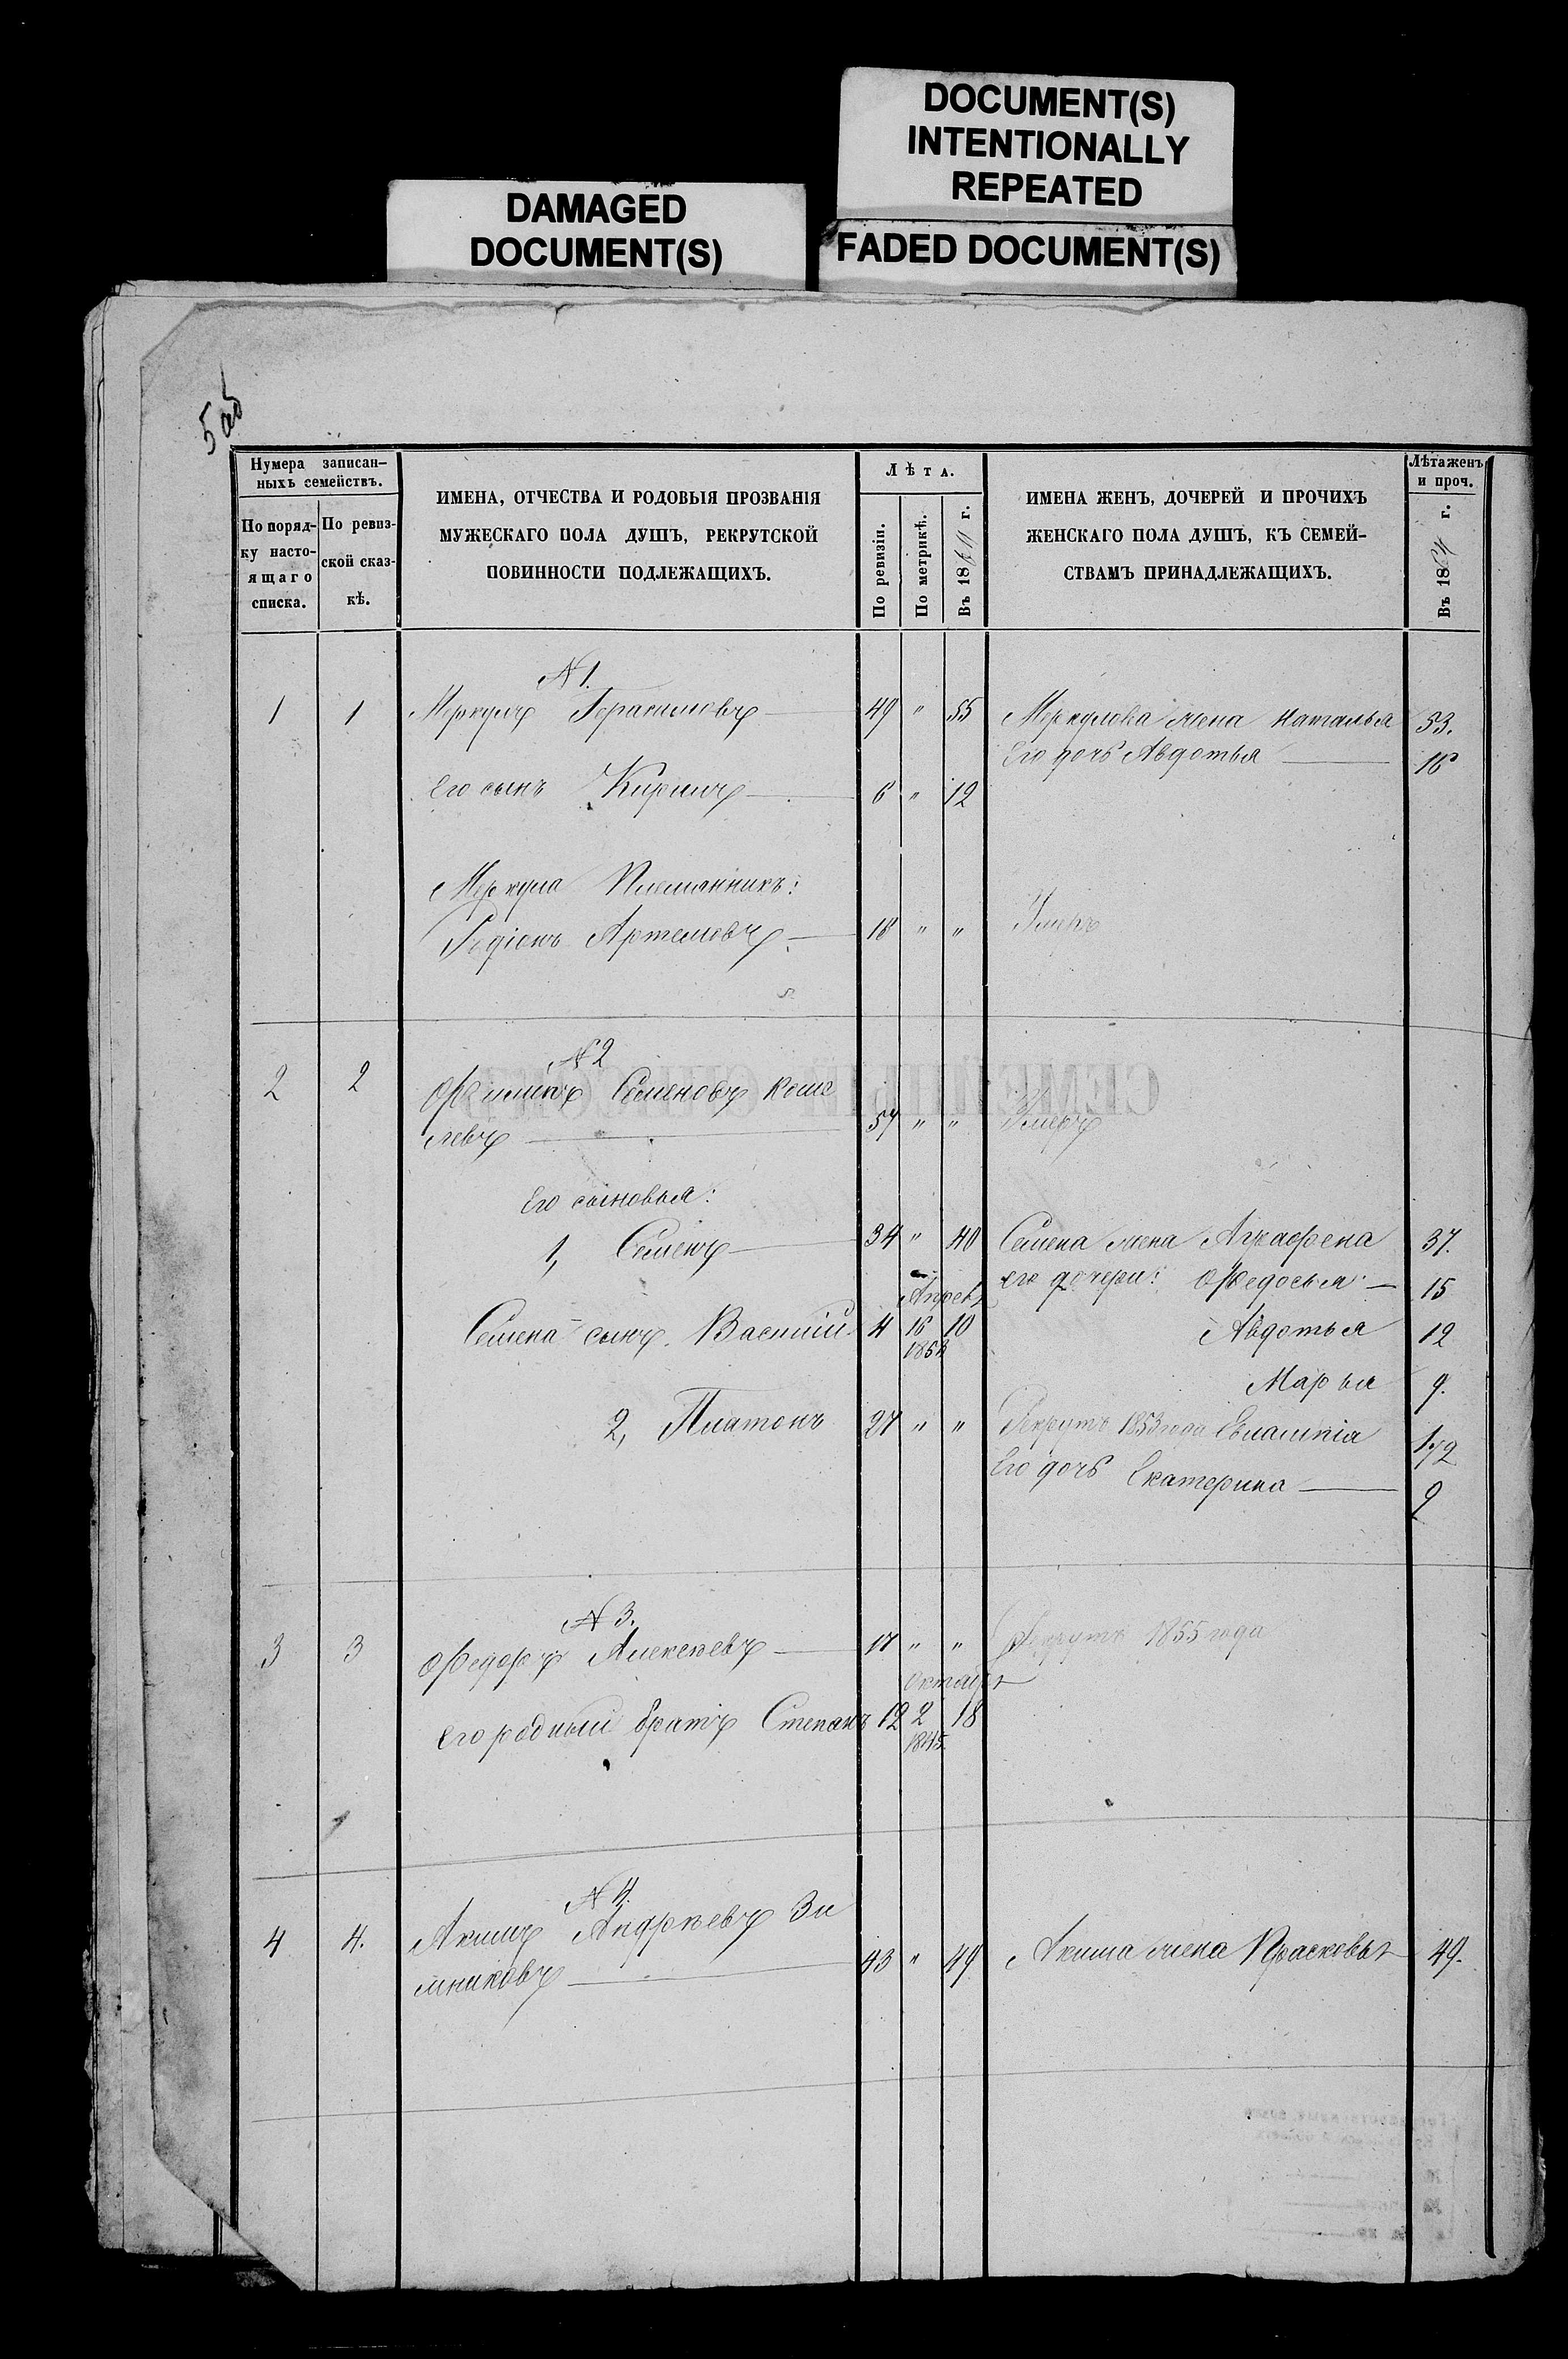 DOCUMENT(S)
INTENTIONALLY
REPEATED
DAMAGED
DOCUMENT(S)
FADED DOCUMENT(S)
Нумера записан-
ныхъ семействъ.
По поряд-
ку насто-
ящаго
списка.
По ревиз-
ской сказ-
кѣ.
ИМЕНА, ОТЧЕСТВА И РОДОВЫЯ ПРОЗВАНІЯ
МУЖЕСКАГО ПОЛА ДУШЪ, РЕКРУТСКОЙ
ПОВИННОСТИ ПОДЛЕЖАЩИХЪ.
Лѣта.
По ревизіи.
По метрикѣ.
Въ 1864 г.
ИМЕНА ЖЕНЪ, ДОЧЕРЕЙ И ПРОЧИХЪ
ЖЕНСКАГО ПОЛА ДУШЪ, КЪ СЕМЕЙ-
СТВАМЪ ПРИНАДЛЕЖАЩИХЪ.
Лѣта женъ
и проч.
Въ 1864 г.
N 1.
1 1 Меркулъ Герасимовъ 49 " 55 Меркулова жена Наталья 53.
Его дочь Авдотья 16
Его сынъ Кирилъ 6 " 12
Меркула Племянникъ:
Родіонъ Артемовъ 18 " " Умеръ
N 2
2 2 Филипъ Семеновъ Коше
левъ 57 " " Умеръ
Его сыновья:
1, Семенъ 34 " 40 Семена жена Аграфена 37.
его дочери: Федосья 15
Апрель
Семена сынъ Василій 4 16 10 Авдотья 12
1854
Марья 9.
2, Платонъ 27 " " Рекрутъ 1853 года Евлампія
Его дочь Екатерина 9
N 3.
3 3 Федоръ Алексѣевъ 17 " " Рекрутъ 1855 года
Октября
его родный братъ Степанъ 12 2 18
1845.
N 4.
4 4. Акимъ Андреевъ Зи
мниковъ 43 " 49 Акима жена Прасковья 49.